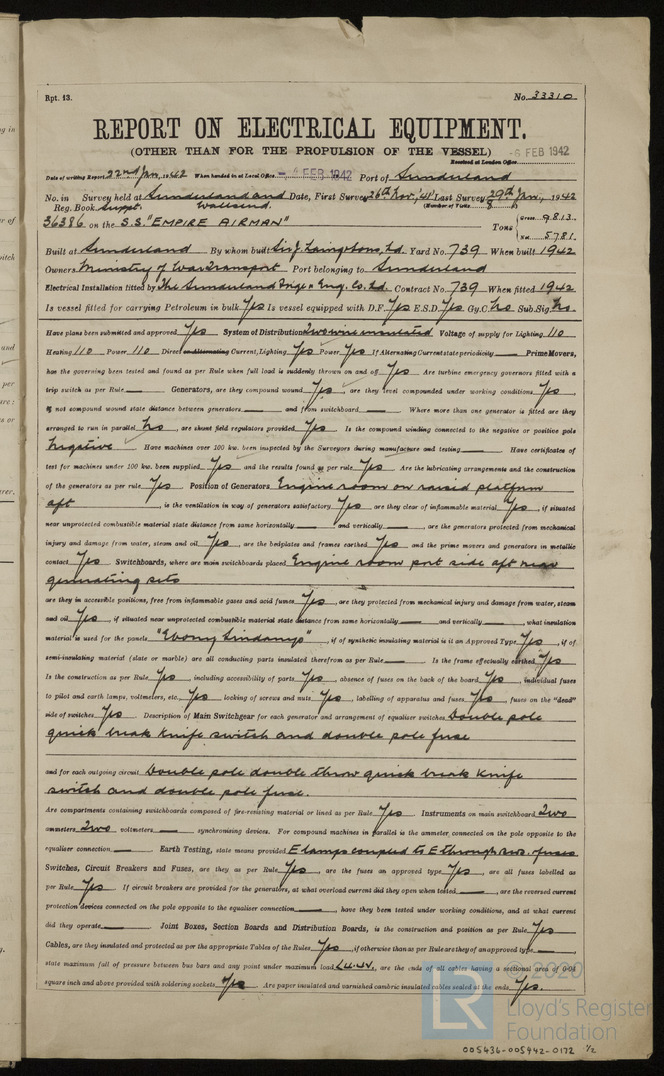 Rpt. 13. No. 33310
REPORT ON ELECTRICAL EQUIPMENT.
(OTHER THAN FOR THE PROPULSION OF THE VESSEL)
-6 FEB 1942
Received at London Office
Date of writing Report 22nd Jan, 1942 When handed in at Local Office -4 FEB 1942 Port of Sunderland
No. in Survey held at Sunderland and Wallsend. Date, First Survey 26th Nov, '41 Last Survey 29th Jan, 1942
Reg. Book. Suppt. (Number of Visits 8)
36386 on the S.S. "EMPIRE AIRMAN" Tons Gross 9813. Net 5781.
Built at Sunderland By whom built Sir J. Laing & Sons, Ld. Yard No. 739 When built 1942
Owners Ministry of War Transport Port belonging to Sunderland
Electrical Installation fitted by The Sunderland Forge & Eng. Co. Ld. Contract No. 739 When fitted 1942
Is vessel fitted for carrying Petroleum in bulk Yes Is vessel equipped with D.F. Yes E.S.D. Yes Gy.C. No Sub.Sig. No
Have plans been submitted and approved Yes System of Distribution Two wire insulated Voltage of supply for Lighting 110
Heating 110 Power 110 Direct or Alternating Current, Lighting Yes Power Yes If Alternating Current state periodicity — Prime Movers,
has the governing been tested and found as per Rule when full load is suddenly thrown on and off Yes Are turbine emergency governors fitted with a
trip switch as per Rule — Generators, are they compound wound Yes, are they level compounded under working conditions Yes,
if not compound wound state distance between generators — and from switchboard — Where more than one generator is fitted are they
arranged to run in parallel No, are shunt field regulators provided Yes Is the compound winding connected to the negative or positive pole
Negative Have machines over 100 kw. been inspected by the Surveyors during manufacture and testing — Have certificates of
test for machines under 100 kw. been supplied Yes and the results found as per rule Yes Are the lubricating arrangements and the construction
of the generators as per rule Yes Position of Generators Engine room on raised platform
aft, is the ventilation in way of generators satisfactory Yes are they clear of inflammable material Yes, if situated
near unprotected combustible material state distance from same horizontally — and vertically —, are the generators protected from mechanical
injury and damage from water, steam and oil Yes, are the bedplates and frames earthed Yes and the prime movers and generators in metallic
contact Yes Switchboards, where are main switchboards placed Engine room port side aft near
generating sets
are they in accessible positions, free from inflammable gases and acid fumes Yes, are they protected from mechanical injury and damage from water, steam
and oil Yes, if situated near unprotected combustible material state distance from same horizontally — and vertically —, what insulation
material is used for the panels "Ebony Sindanyo", if of synthetic insulating material is it an Approved Type Yes, if of
semi-insulating material (slate or marble) are all conducting parts insulated therefrom as per Rule — Is the frame effectually earthed Yes
Is the construction as per Rule Yes, including accessibility of parts Yes, absence of fuses on the back of the board Yes, individual fuses
to pilot and earth lamps, voltmeters, etc. Yes locking of screws and nuts Yes, labelling of apparatus and fuses Yes, fuses on the "dead"
side of switches Yes Description of Main Switchgear for each generator and arrangement of equaliser switches Double pole
quick break knife switch and double pole fuse
and for each outgoing circuit Double pole double throw quick break knife
switch and double pole fuse.
Are compartments containing switchboards composed of fire-resisting material or lined as per Rule Yes Instruments on main switchboard Two
ammeters Two voltmeters — synchronising devices. For compound machines in parallel is the ammeter connected on the pole opposite to the
equaliser connection — Earth Testing, state means provided E lamps coupled to E through fuses
Switches, Circuit Breakers and Fuses, are they as per Rule Yes, are the fuses an approved type Yes, are all fuses labelled as
per Rule Yes If circuit breakers are provided for the generators, at what overload current did they open when tested —, are the reversed current
protection devices connected on the pole opposite to the equaliser connection —, have they been tested under working conditions, and at what current
did they operate — Joint Boxes, Section Boards and Distribution Boards, is the construction and position as per Rule Yes
Cables, are they insulated and protected as per the appropriate Tables of the Rules Yes, if otherwise than as Rule are they of an approved type —
state maximum fall of pressure between bus bars and any point under maximum load, are the ends of all cables having a sectional area of 0·04
square inch and above provided with soldering sockets Yes Are paper insulated and varnished cambric insulated cables sealed at the ends Yes.
© 2020
LR Lloyd's Register
Foundation
005436-005942-0172 1/2